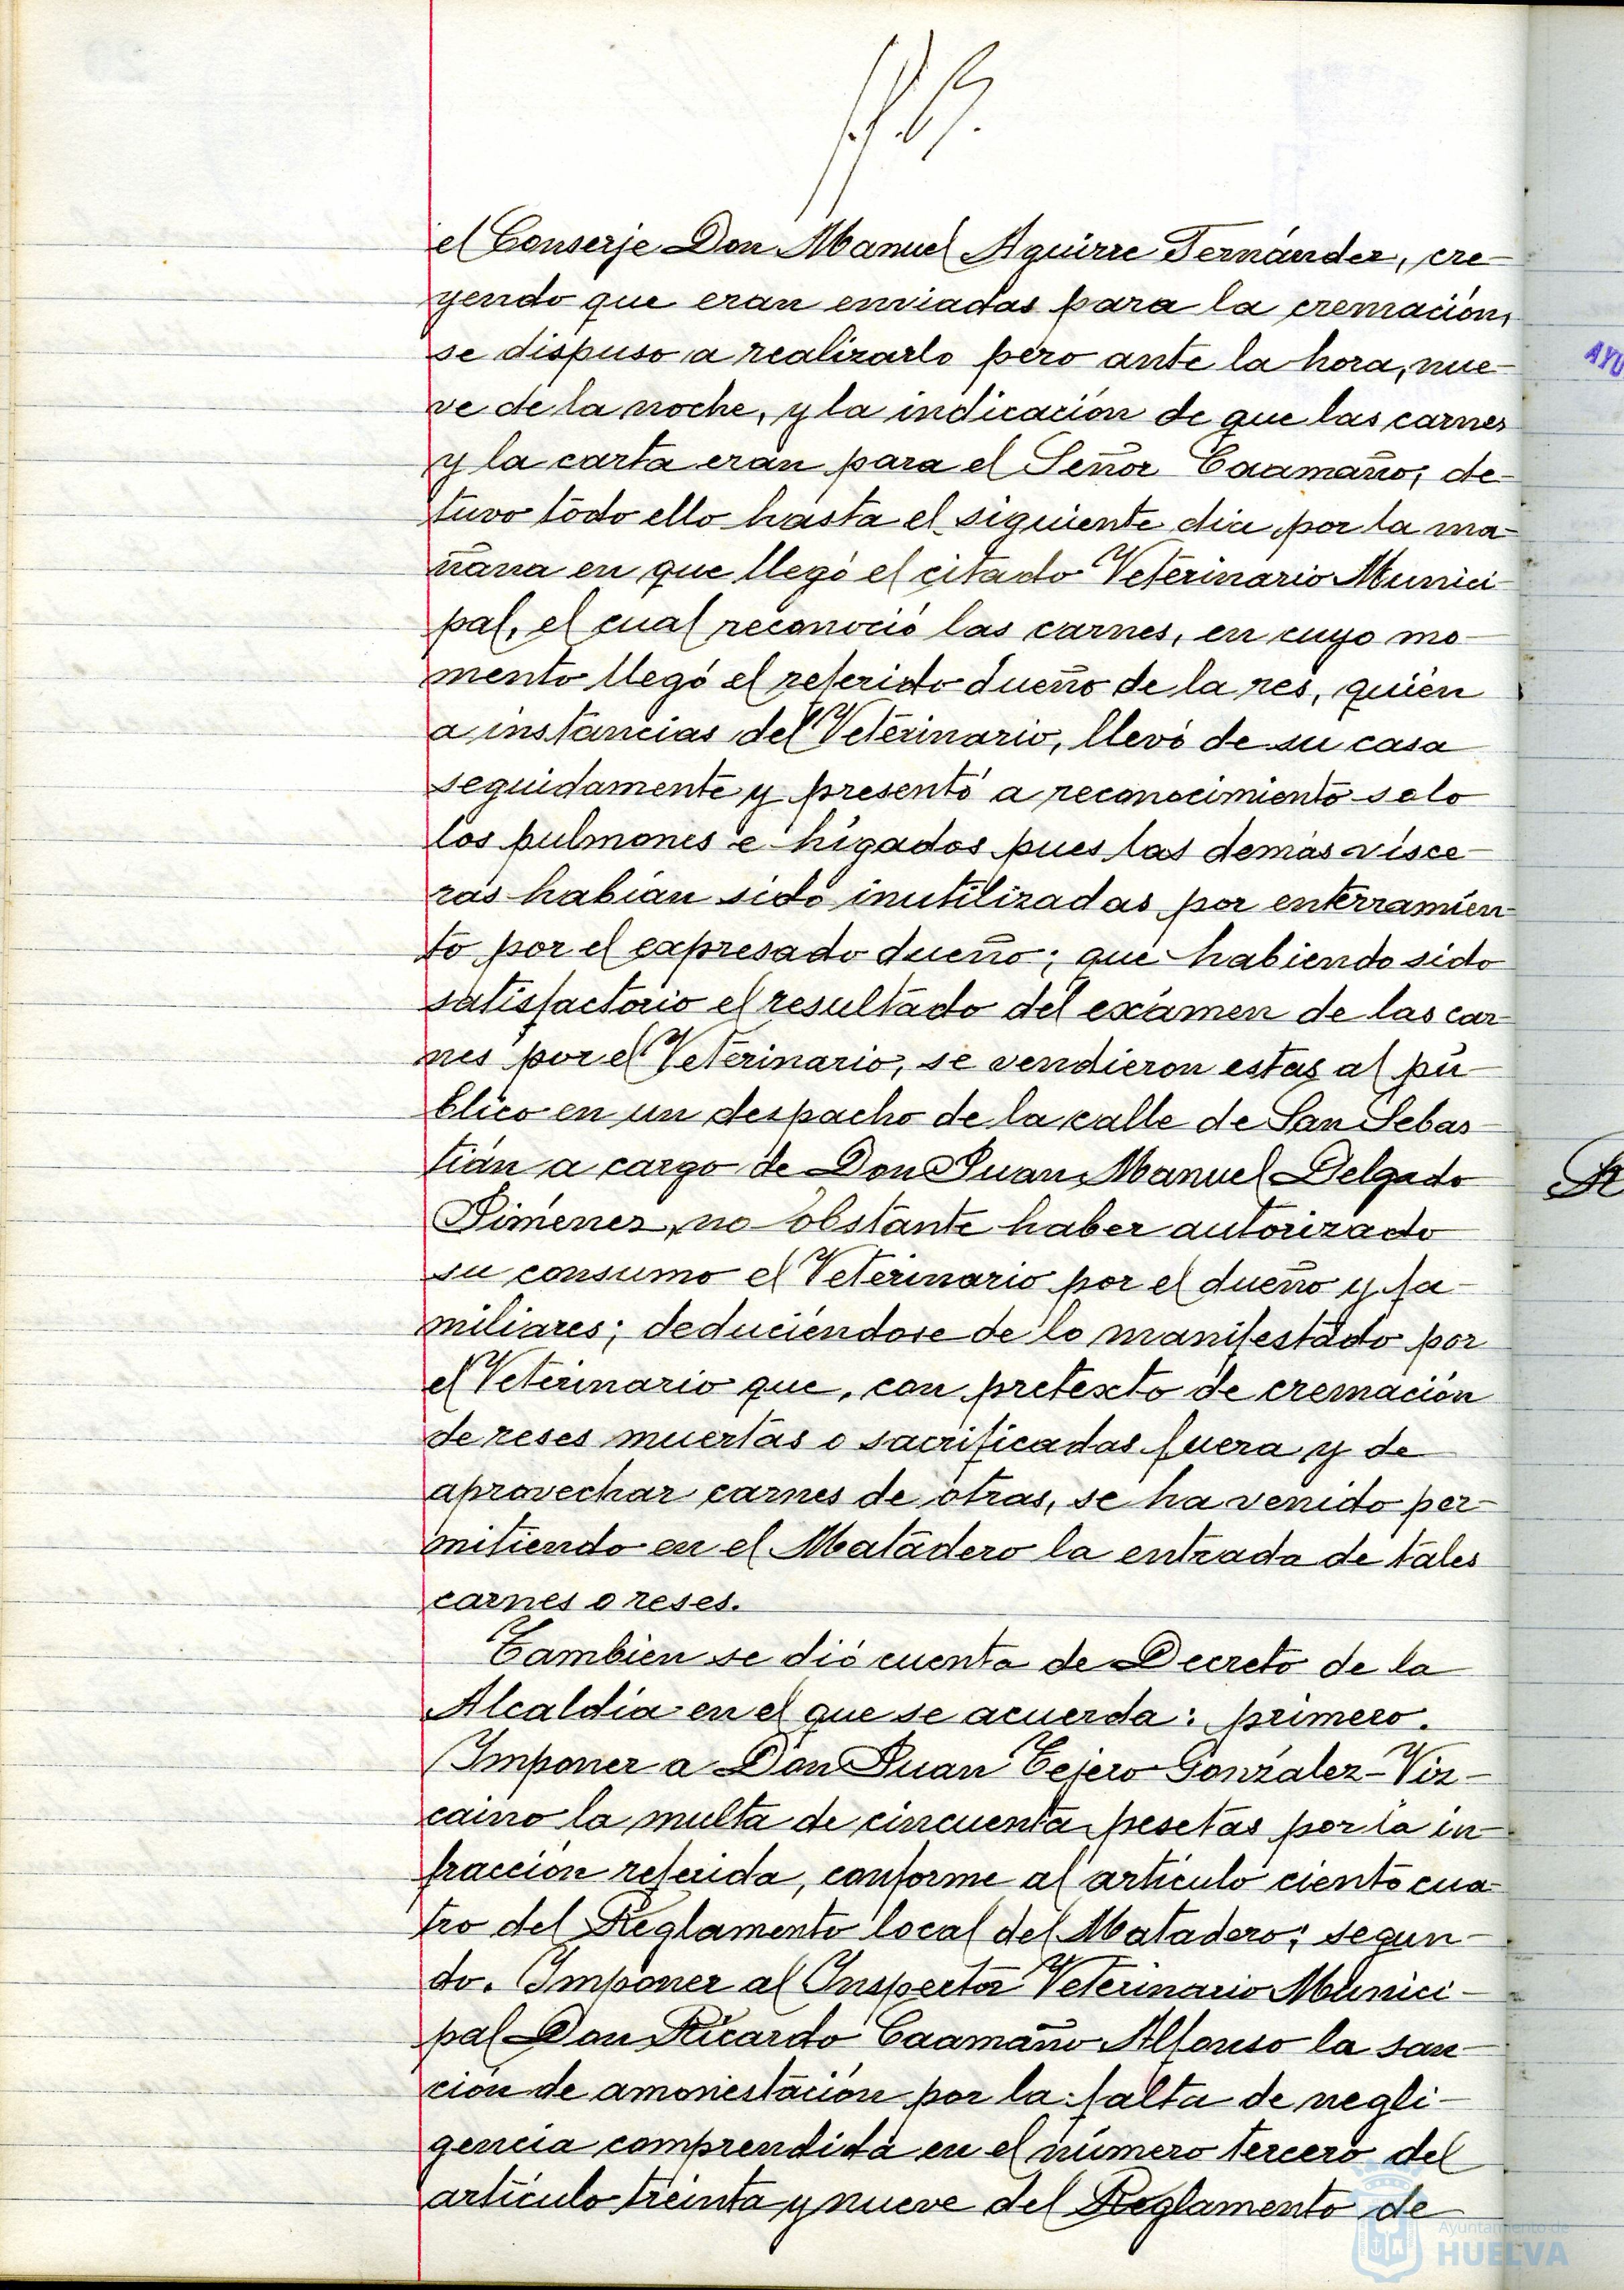 el Conserje Don Manuel Aguirre Fernández, cre-
yendo que eran enviadas para la cremación,
se dispuso a realizarlo pero ante la hora, nue-
ve de la noche, y la indicación de que las carnes
y la carta eran para el Señor Caamaño, de-
tuvo todo ello hasta el siguiente dia por la ma-
ñana en que llegó el citado Veterinario Munici-
pal, el cual reconoció las carnes, en cuyo mo-
mento llegó el referido dueño de la res, quién
a instancias del Veterinario, llevó de su casa
seguidamente y presentó a reconocimiento solo
los pulmones e higados pues las demás visce-
ras habian sido inutilizadas por enterramien-
to por el expresado dueño; que habiendo sido
satisfactorio el resultado del exámen de las car-
nes por el Veterinario, se vendieron estas al pú-
blico en un despacho de la calle de San Sebas-
tián a cargo de Don Juan Manuel Delgado
Jiménez, no obstante haber autorizado
su consumo el Veterinario por el dueño y fa-
miliares; deduciéndose de lo manifestado por
el Veterinario que, con pretexto de cremación
de reses muertas o sacrificadas fuera y de
aprovechar carnes de otras, se ha venido per-
mitiendo en el Matadero la entrada de tales
carnes o reses.
Tambien se dió cuenta de Decreto de la
Alcaldia en el que se acuerda: primero.
Imponer a Don Juan Tejero González-Viz-
caino la multa de cincuenta pesetas por la in-
fracción referida, conforme al articulo ciento cua-
tro del Reglamento local del Matadero; segun-
do. Imponer al Inspector Veterinario Munici-
pal Don Ricardo Caamaño Alfonso la san-
ción de amonestación por la falta de negli-
gencia comprendida en el número tercero del
articulo treinta y nueve del Reglamento de
AYU
Ayuntamiento de
HUELVA